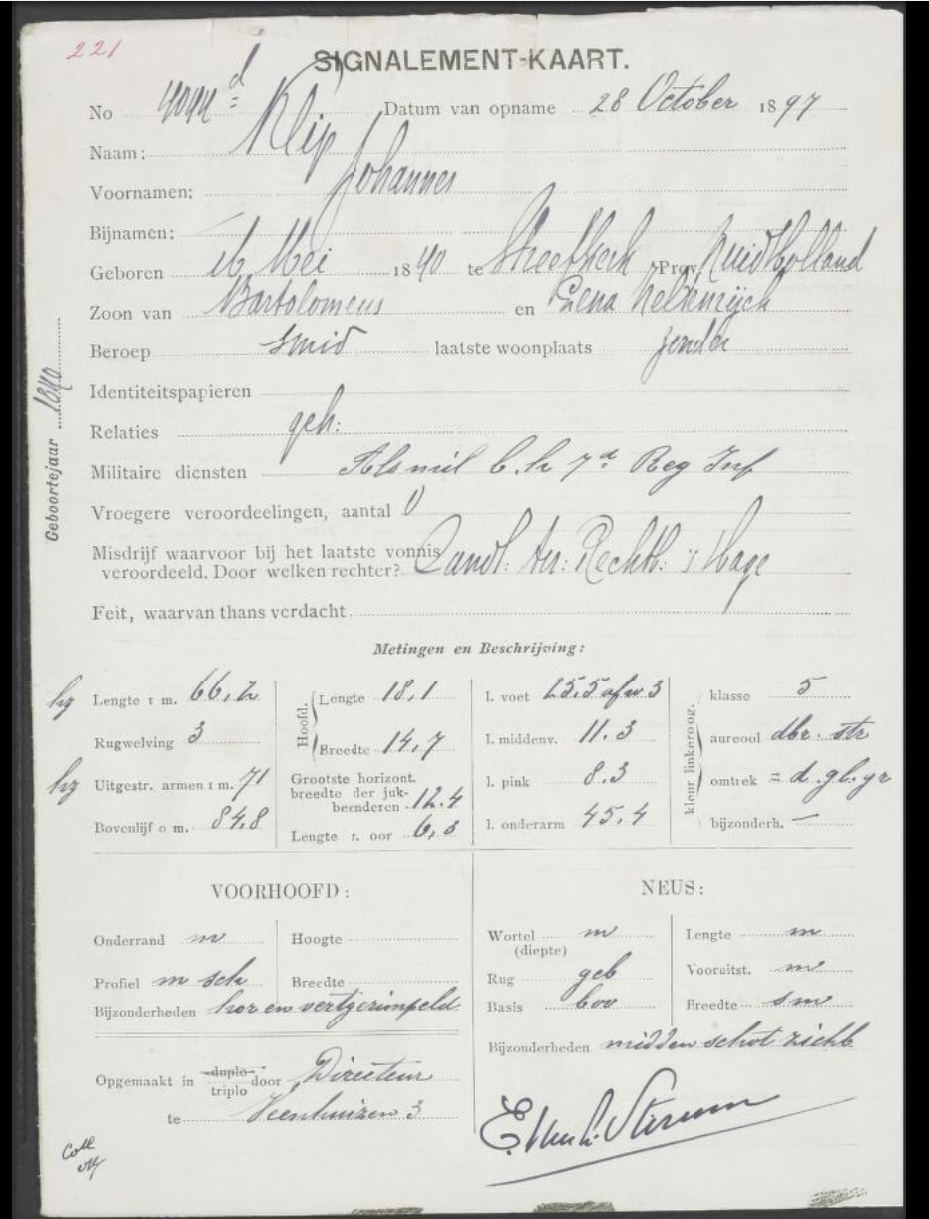 221
SIGNALEMENT-KAART.
No d Datum van opname 28 October 1897
Naam: Klip
Voornamen: Johannes
Bijnamen:
Geboren Mei 1840 te Streefkerk Prov. Zuid Holland
Zoon van Bartolomeus en Lena
Beroep Smid laatste woonplaats zonder
Identiteitspapieren
Relaties geh:
Militaire diensten Als mil b. h 7d Reg Inf
Vroegere veroordeelingen, aantal 0
Misdrijf waarvoor bij het laatste vonnis
veroordeeld. Door welken rechter? Landl: Arr: Rechtb: 's Hage
Feit, waarvan thans verdacht
Geboortejaar 1840
Metingen en Beschrijving:
hg Lengte 1 m. 66,2 Hoofd. Lengte 18,1 l. voet 25.5 afw 3 kleur linkeroog. klasse 5
Rugwelving 3 Breedte 14,7 l. middenv. 11.3 aureool dbr. str
hg Uitgestr. armen 1 m. 71 Grootste horizont. breedte der jukbeenderen 12.4 l. pink 8.3 omtrek = d. gl. gr
Bovenlijf 0 m. 84,8 Lengte r. oor 6,3 l. onderarm 45.4 bijzonderh. —
VOORHOOFD: NEUS:
Onderrand m Hoogte Wortel (diepte) m Lengte m
Profiel m sch Breedte Rug geb Vooruitst. m
Bijzonderheden hor en vert gerimpeld Basis bov Breedte sm
Bijzonderheden midden schot zichtb
Opgemaakt in duplo triplo door Directeur
te Veenhuizen 3
Coll